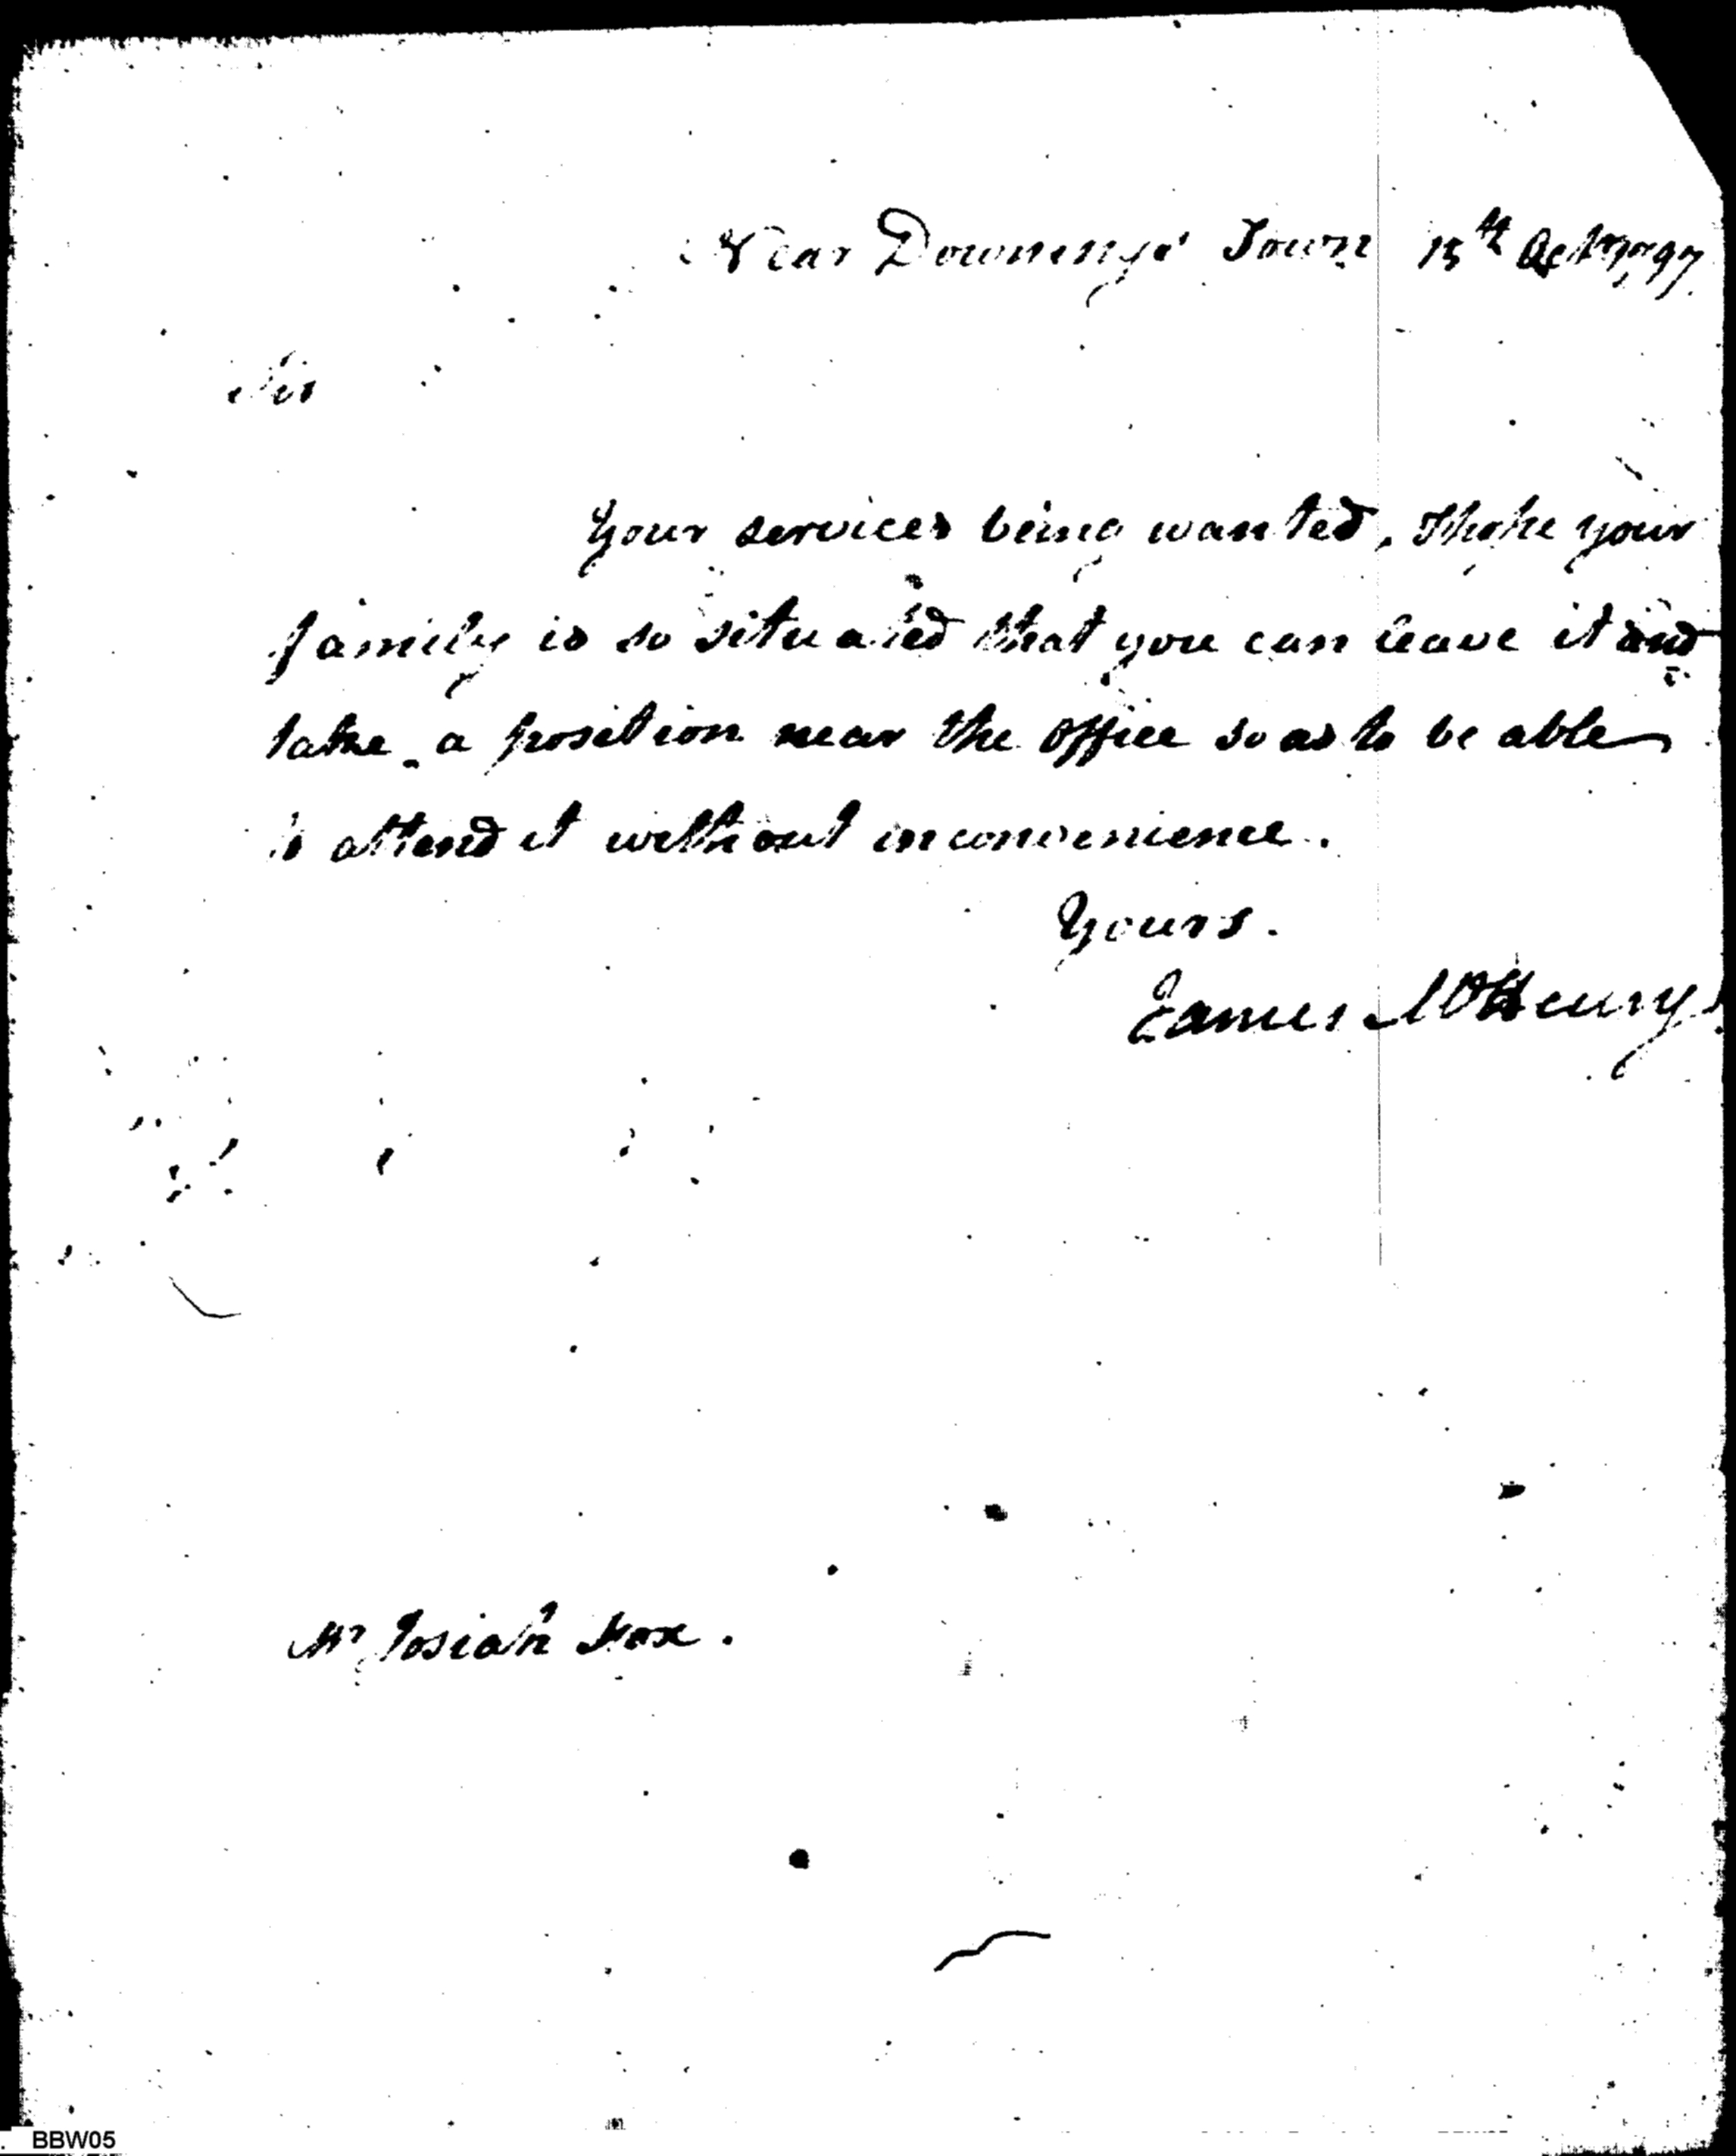 Near Downings Town 15th Octr 1797.
Sir
Your services being wanted, I hope your
family is so situated that you can leave it and
take a position near the office so as to be able
to attend it without inconvenience.
Yours.
James McHenry
Mr Josiah Fox.
BBW05